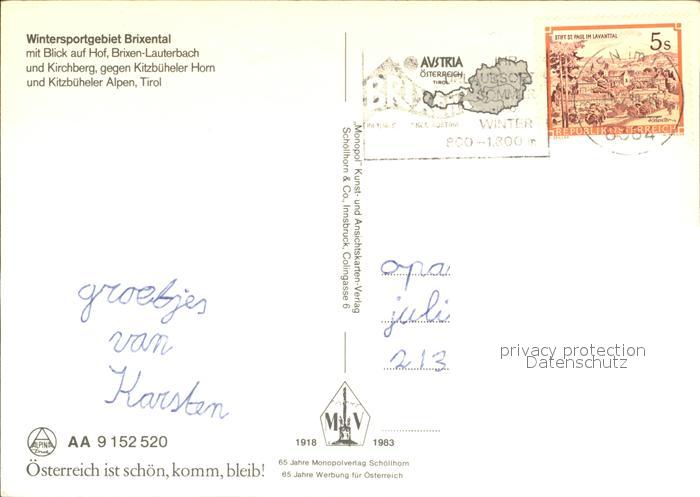 Wintersportgebiet Brixental
mit Blick auf Hof, Brixen-Lauterbach
und Kirchberg, gegen Kitzbüheler Horn
und Kitzbüheler Alpen, Tirol
AUSTRIA
ÖSTERREICH
TIROL
WINTER
800-1.800 m
STIFT ST. PAUL IM LAVANTTAL
5s
REPUBLIK ÖSTERREICH
6364
„Monopol" Kunst- und Ansichtskarten-Verlag
Schöllhorn & Co., Innsbruck, Colingasse 6
groetjes
van
Karsten
opa
juli
213
privacy protection
Datenschutz
ALPINA
Druck
AA 9 152 520
Österreich ist schön, komm, bleib!
M V
1918 1983
65 Jahre Monopolverlag Schöllhorn
65 Jahre Werbung für Österreich